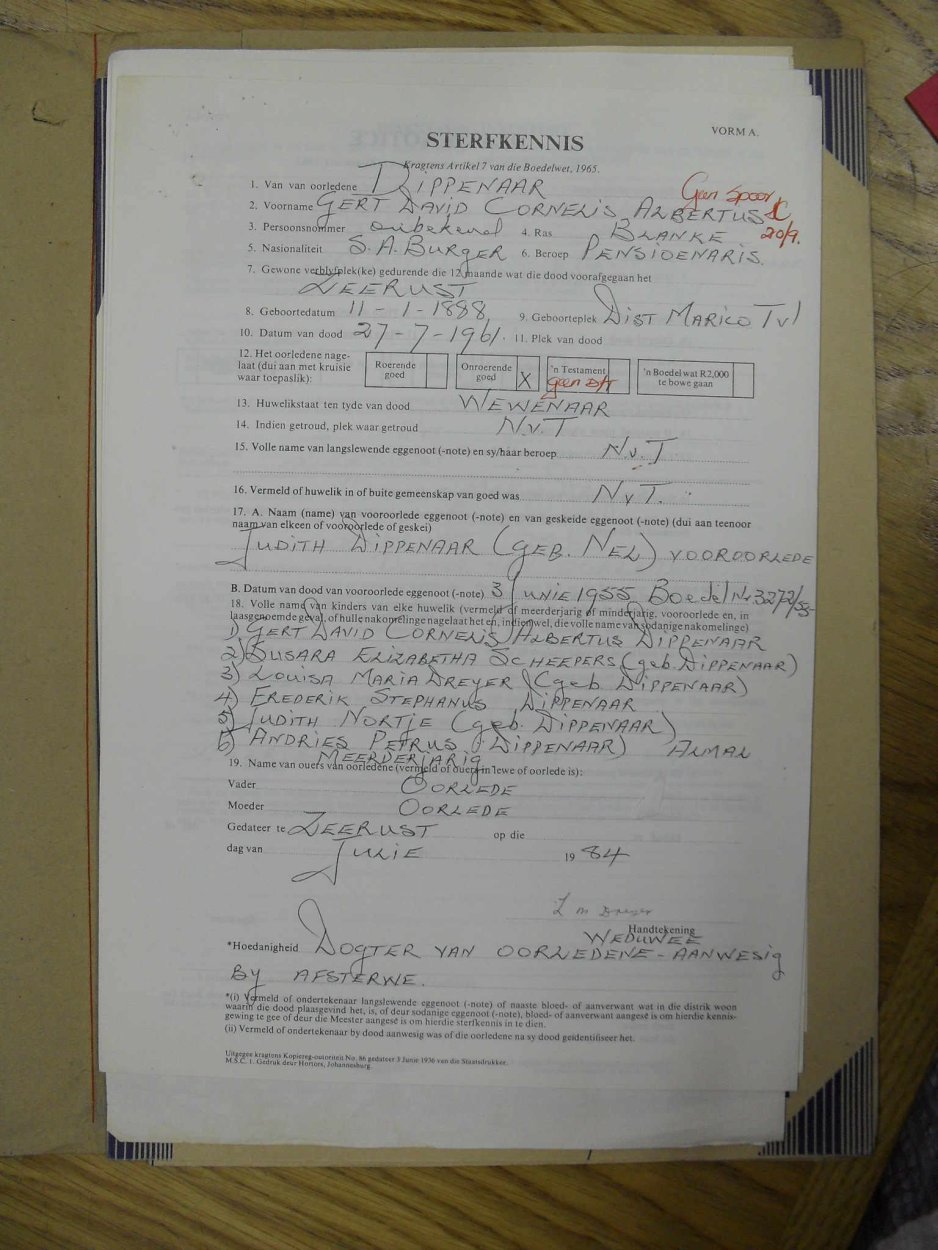 VORM A.
STERFKENNIS
Kragtens Artikel 7 van die Boedelwet, 1965.
1. Van van oorledene DIPPENAAR
Geen Spoor
2. Voorname GERT DAVID CORNELIS ALBERTUS
20/9.
3. Persoonsnommer onbekend 4. Ras BLANKE
5. Nasionaliteit S.A. BURGER 6. Beroep PENSIOENARIS.
7. Gewone verblyfplek(ke) gedurende die 12 maande wat die dood voorafgegaan het
ZEERUST
8. Geboortedatum 11-1-1888, 9. Geboorteplek DIST MARICO Tvl
10. Datum van dood 27-7-1961. 11. Plek van dood
12. Het oorledene nage-
laat (dui aan met kruisie
waar toepaslik):
Roerende
goed
Onroerende
goed X
'n Testament
geen
'n Boedel wat R2,000
te bowe gaan
13. Huwelikstaat ten tyde van dood WEWENAAR
14. Indien getroud, plek waar getroud N.v.T
15. Volle name van langslewende eggenoot (-note) en sy/haar beroep N.v.T
16. Vermeld of huwelik in of buite gemeenskap van goed was N.v.T.
17. A. Naam (name) van vooroorlede eggenoot (-note) en van geskeide eggenoot (-note) (dui aan teenoor
naam van elkeen of vooroorlede of geskei)
JUDITH DIPPENAAR (GEB. NEL) VOOROORLEDE
B. Datum van dood van vooroorlede eggenoot (-note) 3 JUNIE 1955 Boedel Nr 3272/55
18. Volle name van kinders van elke huwelik (vermeld of meerderjarig of minderjarig, vooroorlede en, in
laasgenoemde geval, of hulle nakomelinge nagelaat het en, indien wel, die volle name van sodanige nakomelinge)
1) GERT DAVID CORNELIS ALBERTUS DIPPENAAR
2) SUSARA ELIZABETHA SCHEEPERS (geb. DIPPENAAR)
3) LOUISA MARIA DREYER (geb. DIPPENAAR)
4) FREDERIK STEPHANUS DIPPENAAR
5) JUDITH NORTJE (geb. DIPPENAAR)
6) ANDRIES PETRUS DIPPENAAR) ALMAL
MEERDERJARIG
19. Name van ouers van oorledene (vermeld of ouers in lewe of oorlede is):
Vader OORLEDE
Moeder OORLEDE
Gedateer te ZEERUST op die
dag van JULIE 19 84
L M Dreyer
Handtekening
WEDUWEE
*Hoedanigheid DOGTER VAN OORLEDENE - AANWESIG
BY AFSTERWE.
*(i) Vermeld of ondertekenaar langslewende eggenoot (-note) of naaste bloed- of aanverwant wat in die distrik woon
waarin die dood plaasgevind het, is, of deur sodanige eggenoot (-note), bloed- of aanverwant aangesê is om hierdie kennis-
gewing te gee of deur die Meester aangesê is om hierdie sterfkennis in te dien.
(ii) Vermeld of ondertekenaar by dood aanwesig was of die oorledene na sy dood geïdentifiseer het.
Uitgegee kragtens Kopiereg-outoriteit No. 86 gedateer 3 Junie 1936 van die Staatsdrukker.
M.S.C. 1. Gedruk deur Hortors, Johannesburg.